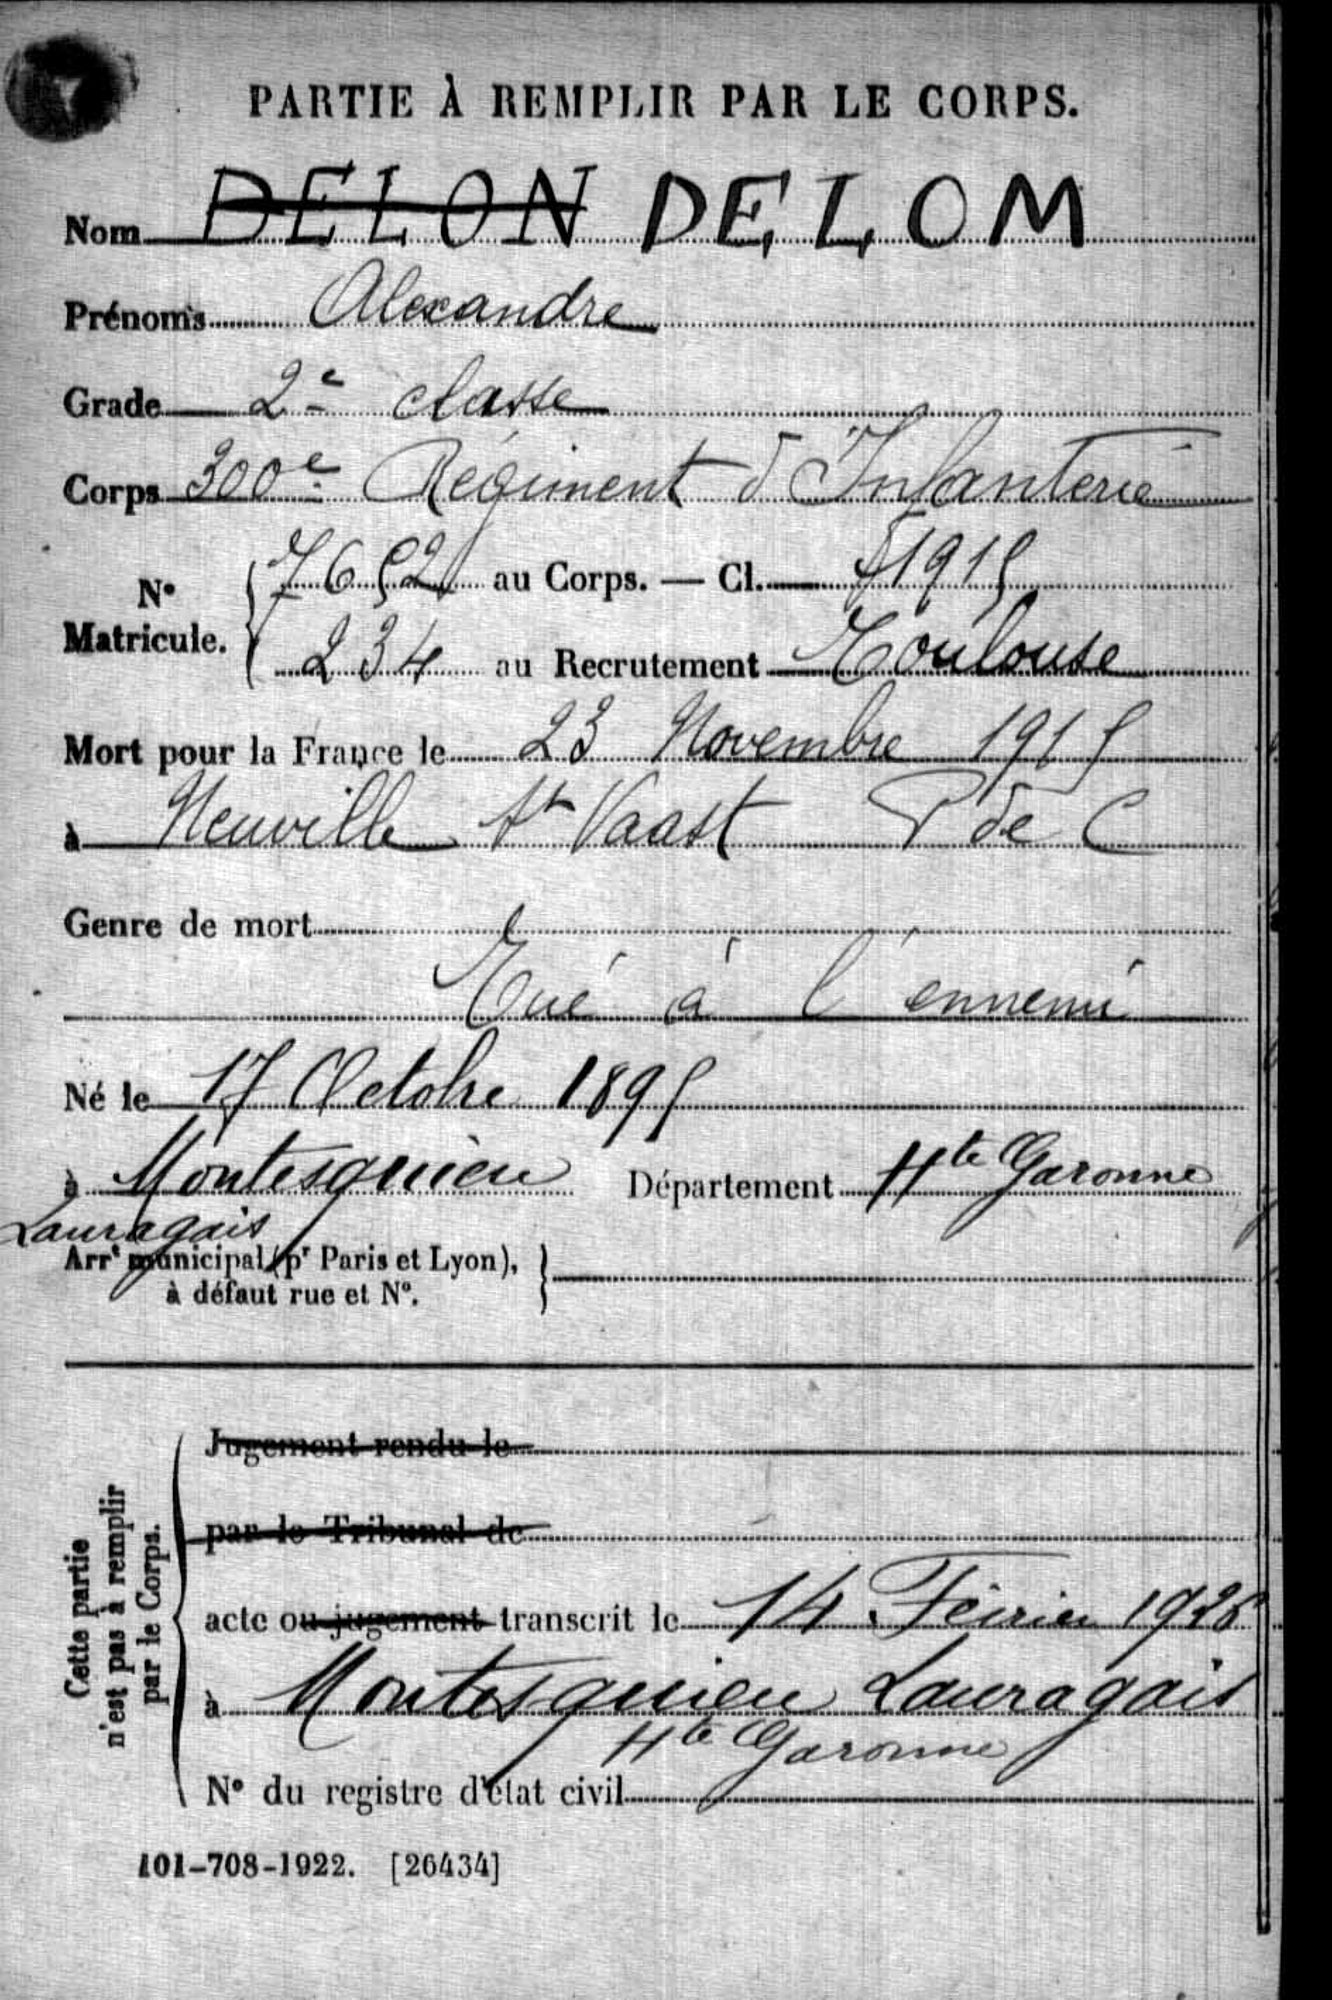 PARTIE À REMPLIR PAR LE CORPS.
Nom DELON DELOM
Prénoms Alexandre
Grade 2e classe
Corps 300e Régiment d'Infanterie
No Matricule. { 7652 au Corps. — Cl. 1915
234 au Recrutement Toulouse
Mort pour la France le 23 Novembre 1915
à Neuville St Vaast P de C
Genre de mort
Tué à l'ennemi
Né le 17 Octobre 1895
à Montesquieu Département Hte Garonne
Lauragais
Arrt municipal (pr Paris et Lyon), }
à défaut rue et No.
Cette partie
n'est pas à remplir
par le Corps.
Jugement rendu le
par le Tribunal de
acte ou jugement transcrit le 14 Février
à Montesquieu Lauragais
Hte Garonne
No du registre d'état civil
101-708-1922. [26434]